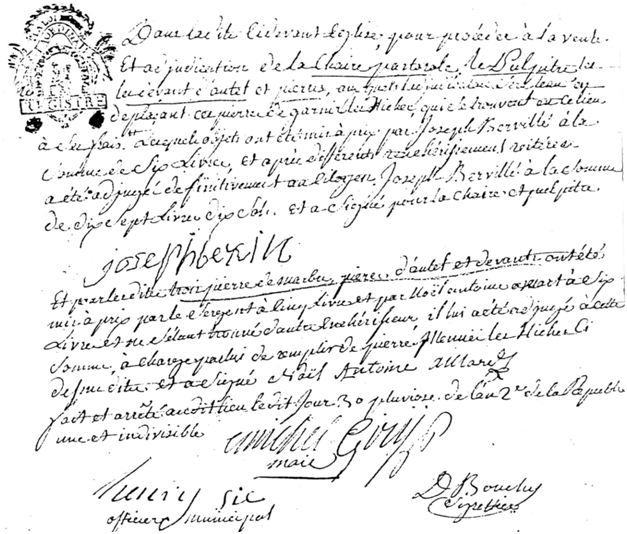 REGISTRE
Dans ladite cidevant Eglise, pour procéder à la vente
Et adjudication de la Chaire pastorale, le Pulpitre les
devant d'autel et pierres,
deplaçant ces pierre de garnir les Niches, qui se trouvent en ce lieu
à ses frais, lesquels objets ont été mis à prix par Joseph Bervillé à la
somme de Six Livres, et après differents encherissement
a été adjugé définitivement au Citoyen Joseph Bervillé à la Somme
de dix Sept Livres dix Sols. Et a Signé pour la Chaire et pulpitre.
Joseph
Et par les dittes trois pierre de marbre, pierres d'autel et devants ont été
mis à prix par le Sergent à Cinq Livre et par Noël antoine à Six
Livre et ne S'étant trouvé d'autre Encherisseur il lui a été adjugé à cette
Somme, à Charge par lui de remplir de pierre les Niches Ci
dessus dite. et a Signé Noël Antoine Allard
fait et arrêté audit lieu ledit Jour 30 pluviose de l'an 2e de la Republi
une et indivisible
michel
maire
officier municipal
D Bouchy